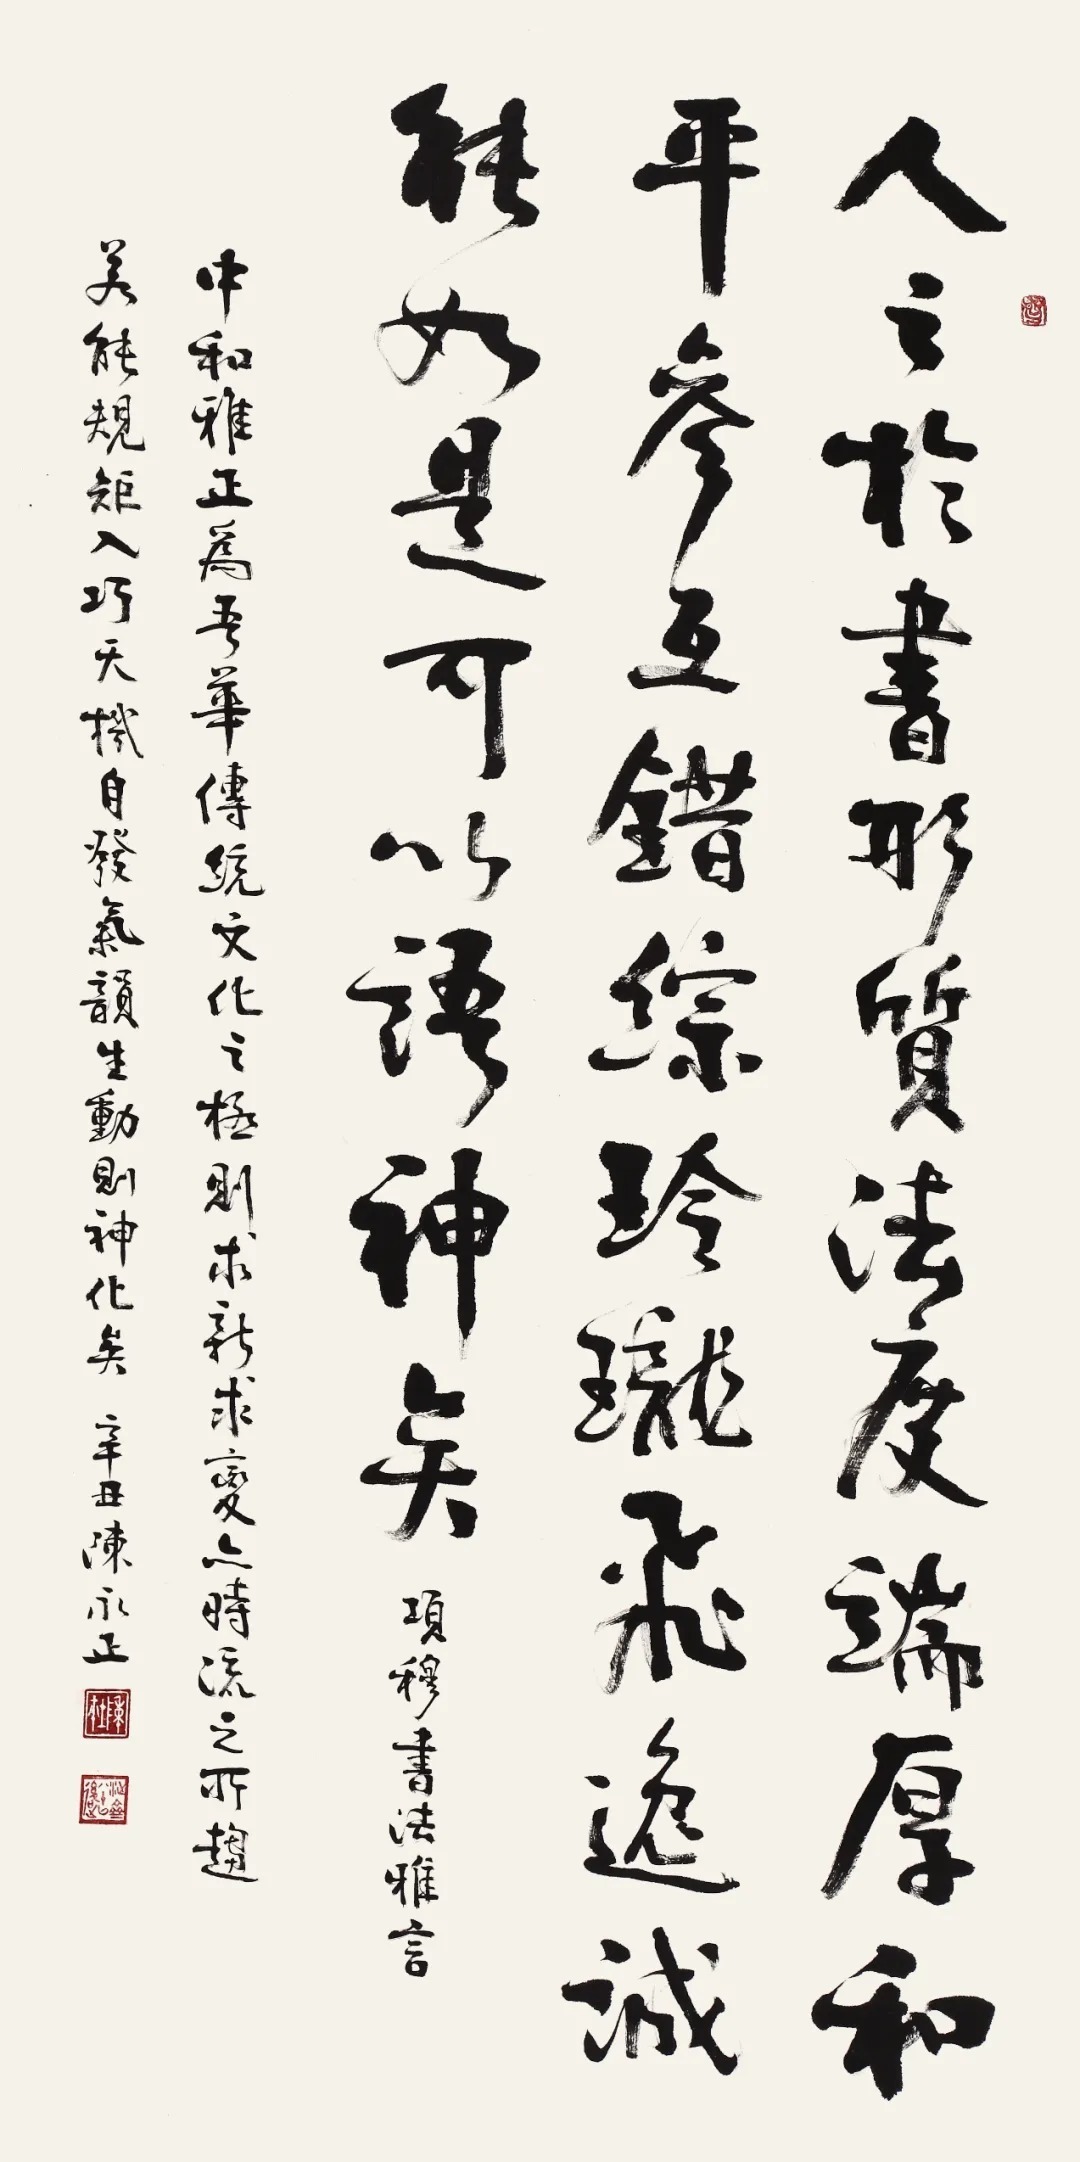 人之於書形質法度端厚和
平參互錯綜玲瓏飛逸誠
能如是可以語神矣 項穆書法雅言
中和雅正為吾華傳統文化之極則求新求變亦時流之所趨
若能規矩入巧天機自發氣韻生動則神化矣 辛丑陳永正